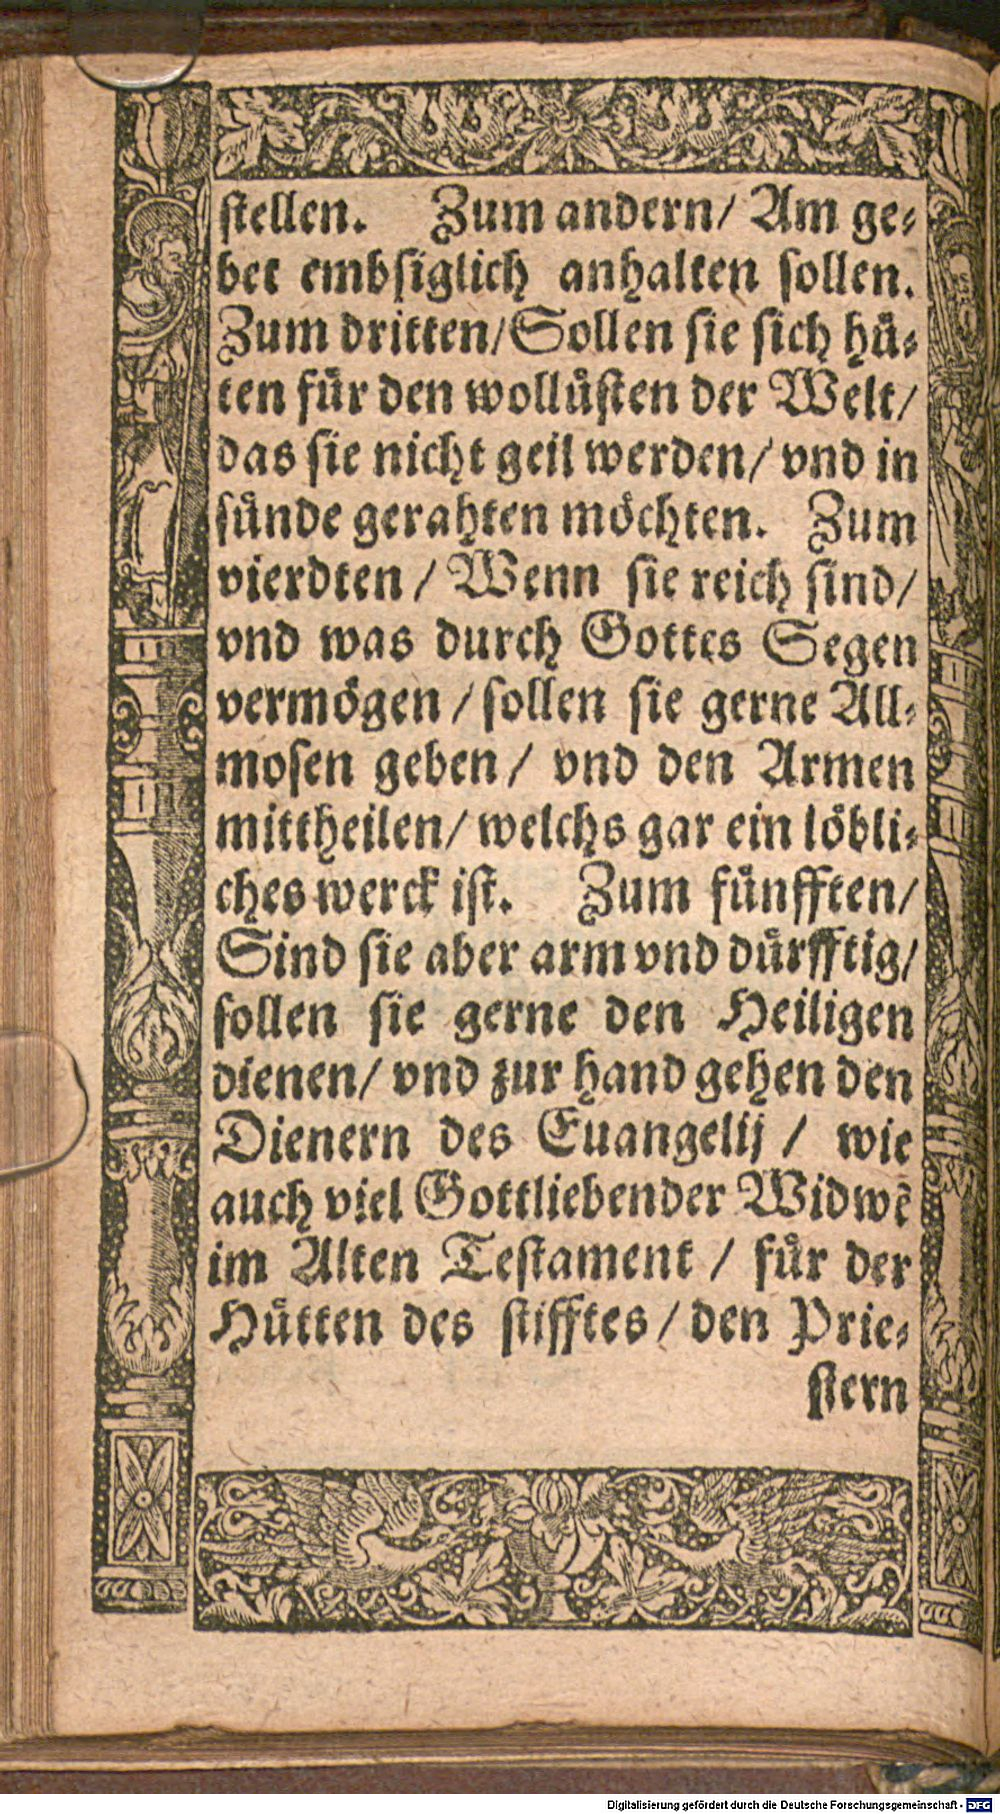 stellen. Zum andern/ Am ge⸗
bet embsiglich anhalten sollen.
Zum dritten/ Sollen sie sich hü⸗
ten für den wollüsten der Welt/
das sie nicht geil werden/ vnd in
sünde gerahten möchten. Zum
vierdten / Wenn sie reich sind/
vnd was durch Gottes Segen
vermögen / sollen sie gerne All⸗
mosen geben / vnd den Armen
mittheilen/ welchs gar ein löbli⸗
ches werck ist. Zum fünfften/
Sind sie aber arm vnd dürfftig/
sollen sie gerne den Heiligen
dienen/ vnd zur hand gehen den
Dienern des Euangelij / wie
auch viel Gottliebender Widwẽ
im Alten Testament / für der
Hütten des stifftes / den Prie⸗
stern
Digitalisierung gefördert durch die Deutsche Forschungsgemeinschaft - DFG